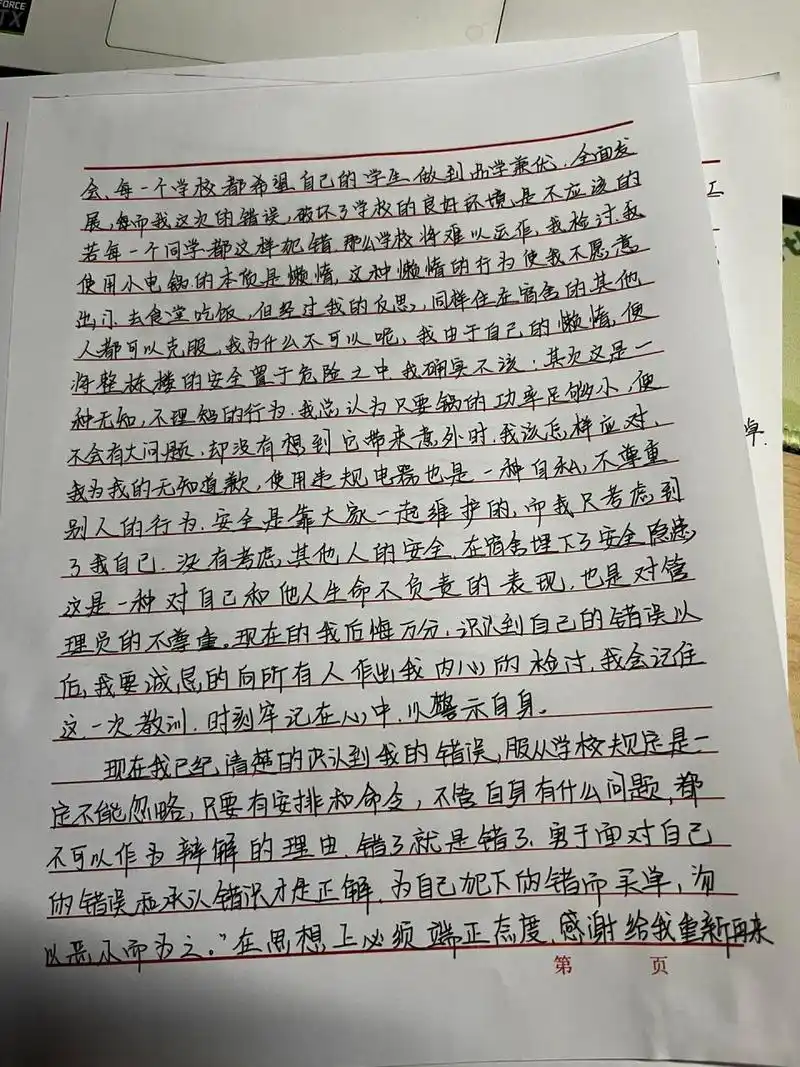 FORCE
TX
会、每一个学校都希望自己的学生做到品学兼优,全面发
展,然而我这次的错误,破坏了学校的良好环境,是不应该的
若每一个同学都这样犯错.那么学校将难以运作,我检讨,我
使用小电锅的本质是懒惰,这种懒惰的行为使我不愿意
出门去食堂吃饭,但经过我的反思,同样住在宿舍的其他
人都可以克服,我为什么不可以呢,我由于自己的懒惰,便
将整栋楼的安全置于危险之中,我确实不该;其次这是一
种无知,不理智的行为.我总认为只要锅的功率足够小,便
不会有大问题,却没有想到它带来意外时,我该怎样应对,
我为我的无知道歉,使用违规电器也是一种自私,不尊重
别人的行为.安全是靠大家一起维护的,而我只考虑到
了我自己.没有考虑其他人的安全.在宿舍埋下了安全隐患,
这是一种对自己和他人生命不负责的表现,也是对管
理员的不尊重。现在的我后悔万分,识认到自己的错误以
后,我要诚恳的向所有人作出我内心的检讨,我会记住
这一次教训.时刻牢记在心中,以警示自身。
现在我已经清楚的识认到我的错误,服从学校规定是一
定不能忽略,只要有安排和命令,不管自身有什么问题,都
不可以作为辩解的理由.错了就是错了.勇于面对自己
的错误和承认错误才是正解.为自己犯下的错而买单,勿
以恶小而为之。"在思想上必须端正态度,感谢给我重新再来
第 页